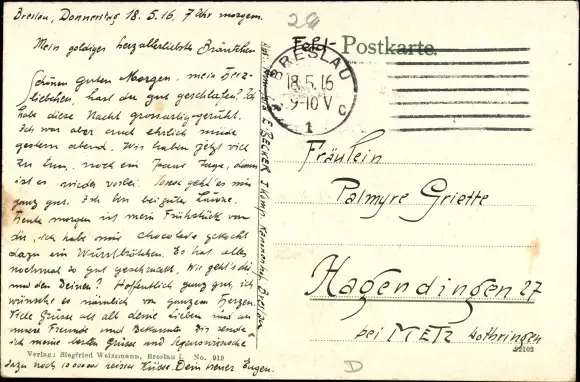 Breslau, Donnerstag 18.5.16. 7 Uhr morgens.
Mein goldiges herzallerliebstes Bräutchen
Schönen Guten Morgen, mein Herz-
liebchen, hast du gut geschlafen? Ich
habe diese Nacht grossartig geruht.
Ich war aber auch ehrlich müde
gestern abend. Wir haben jetzt viel
zu tun, noch ein paar Tage, dann
ist es wieder vorbei. Sonst geht's mir
ganz gut. Ich bin bei guter Laune.
Heute morgen ist mein Frühstück von
dir, ich habe mir chocolade gekocht
dazu ein Würstbötchen. Es hat alles
nochmal so gut geschmeckt. Wie geht's dir
und den Deinen? Hoffentlich ganz gut, ich
wünsche es nämlich von ganzem Herzen.
Viele Grüsse an all deine Lieben und an
unsere Freunde und Bekannten. Dir sende
ich meine besten Grüsse und Segenswünsche
Verlag: Siegfried Weitzmann, Breslau I. No. 919
dazu noch heissen Küsse. Dein treuer Eugen.
E. BECKER I Komp. Breslau
24
Feld-Postkarte.
BRESLAU
18.5.16
9-10 V
1
c
Fräulein
Palmyre Griette
Hagendingen 27
bei METZ Lothringen
22102
D